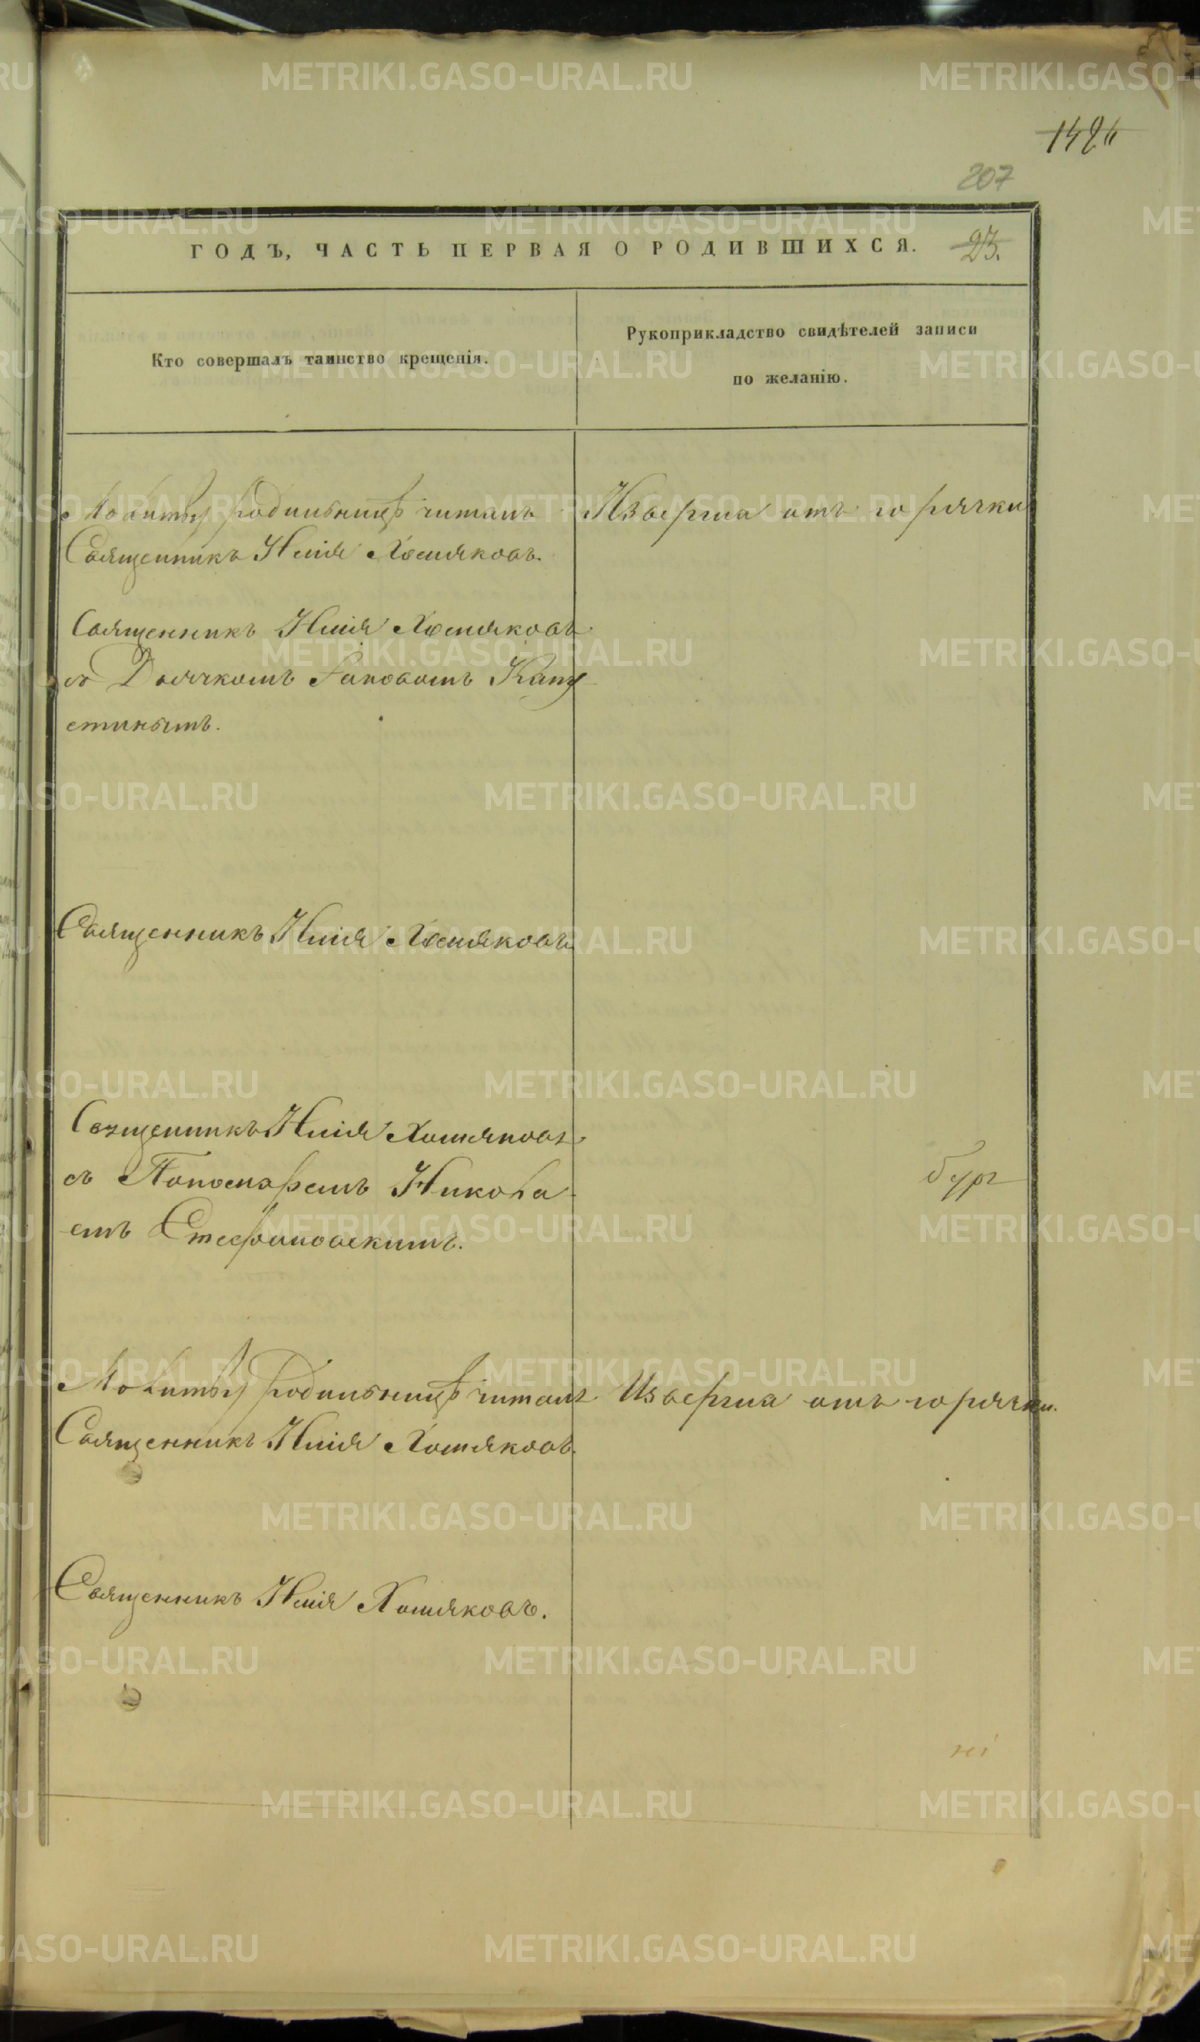 142
207
ГОДЪ, ЧАСТЬ ПЕРВАЯ О РОДИВШИХСЯ. 23.
Кто совершалъ таинство крещенія.
Рукоприкладство свидѣтелей записи
по желанію.
Молитву родильницѣ читалъ Извергла отъ горячки
Священникъ Илія Хомяковъ.
Священникъ Илія Хомяковъ
съ Дьячкомъ Яковомъ Капу
стинымъ.
Священникъ Илія Хомяковъ
Священникъ Илія Хомяковъ
съ Пономаремъ Никола
емъ Стефановскимъ.
Молитву родильницѣ читалъ Извергла отъ горячки.
Священникъ Илія Хомяковъ.
Священникъ Илія Хомяковъ.
METRIKI.GASO-URAL.RU